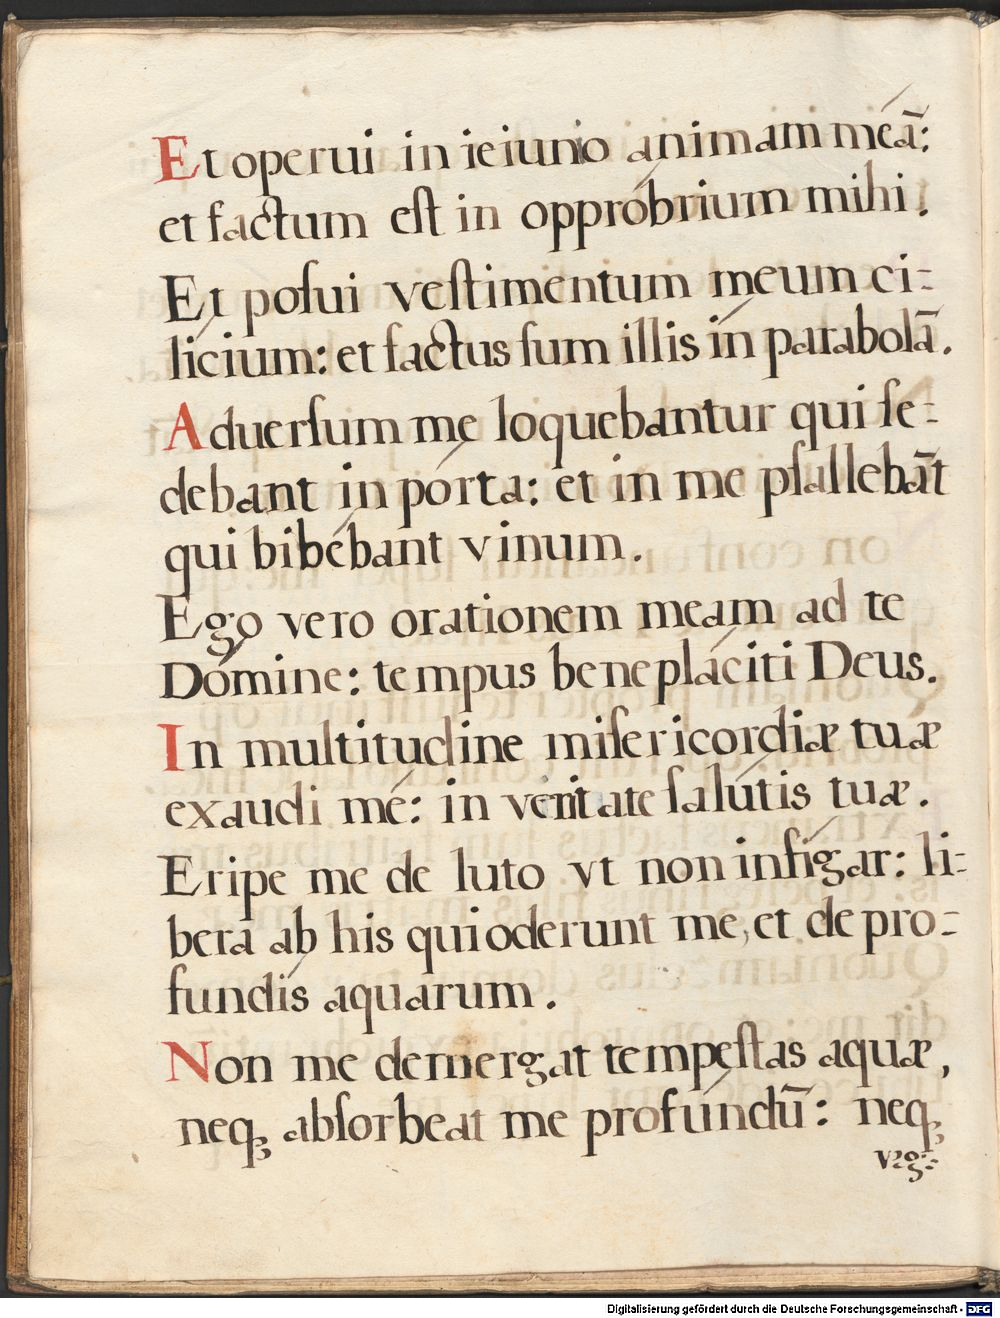 Et operui in ieiunio animam meã:
et factum est in oppróbrium mihi.
Et posui vestimentum meum ci-
lícium: et factus sum illis in parabolã.
Aduersum me loquebantur qui se-
debant in pórta: et in me psallebãt
qui bibébant vinum.
Ego vero orationem meam ad te
Dómine: tempus beneplàciti Deus.
In multitudine misericordiæ tuæ
exaudi mé: in veritate salútis tuæ.
Eripe me de luto vt non infigar: li-
bera ab his qui oderunt me, et de pro-
fundís aquarum.
Non me demergat tempestas aquæ,
neq₃ absorbeat me profúndũ: neq₃
vrg:
Digitalisierung gefördert durch die Deutsche Forschungsgemeinschaft - DFG